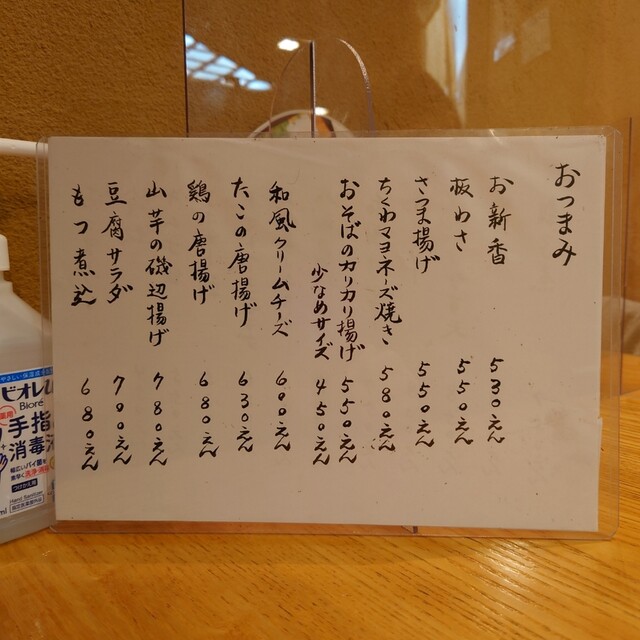 おつまみ
お新香 530えん
板わさ 550えん
さつま揚げ 550えん
ちくわマヨネーズ焼き 580えん
おそばのカリカリ揚げ 550えん
少なめサイズ 450えん
和風クリームチーズ 600えん
たこの唐揚げ 630えん
鶏の唐揚げ 680えん
山芋の磯辺揚げ 780えん
豆腐サラダ 700えん
もつ煮込 680えん
ビオレu
Bioré
手指
消毒液
幅広いバイ菌を
つけかえ用
Hand Sanitizer
ml